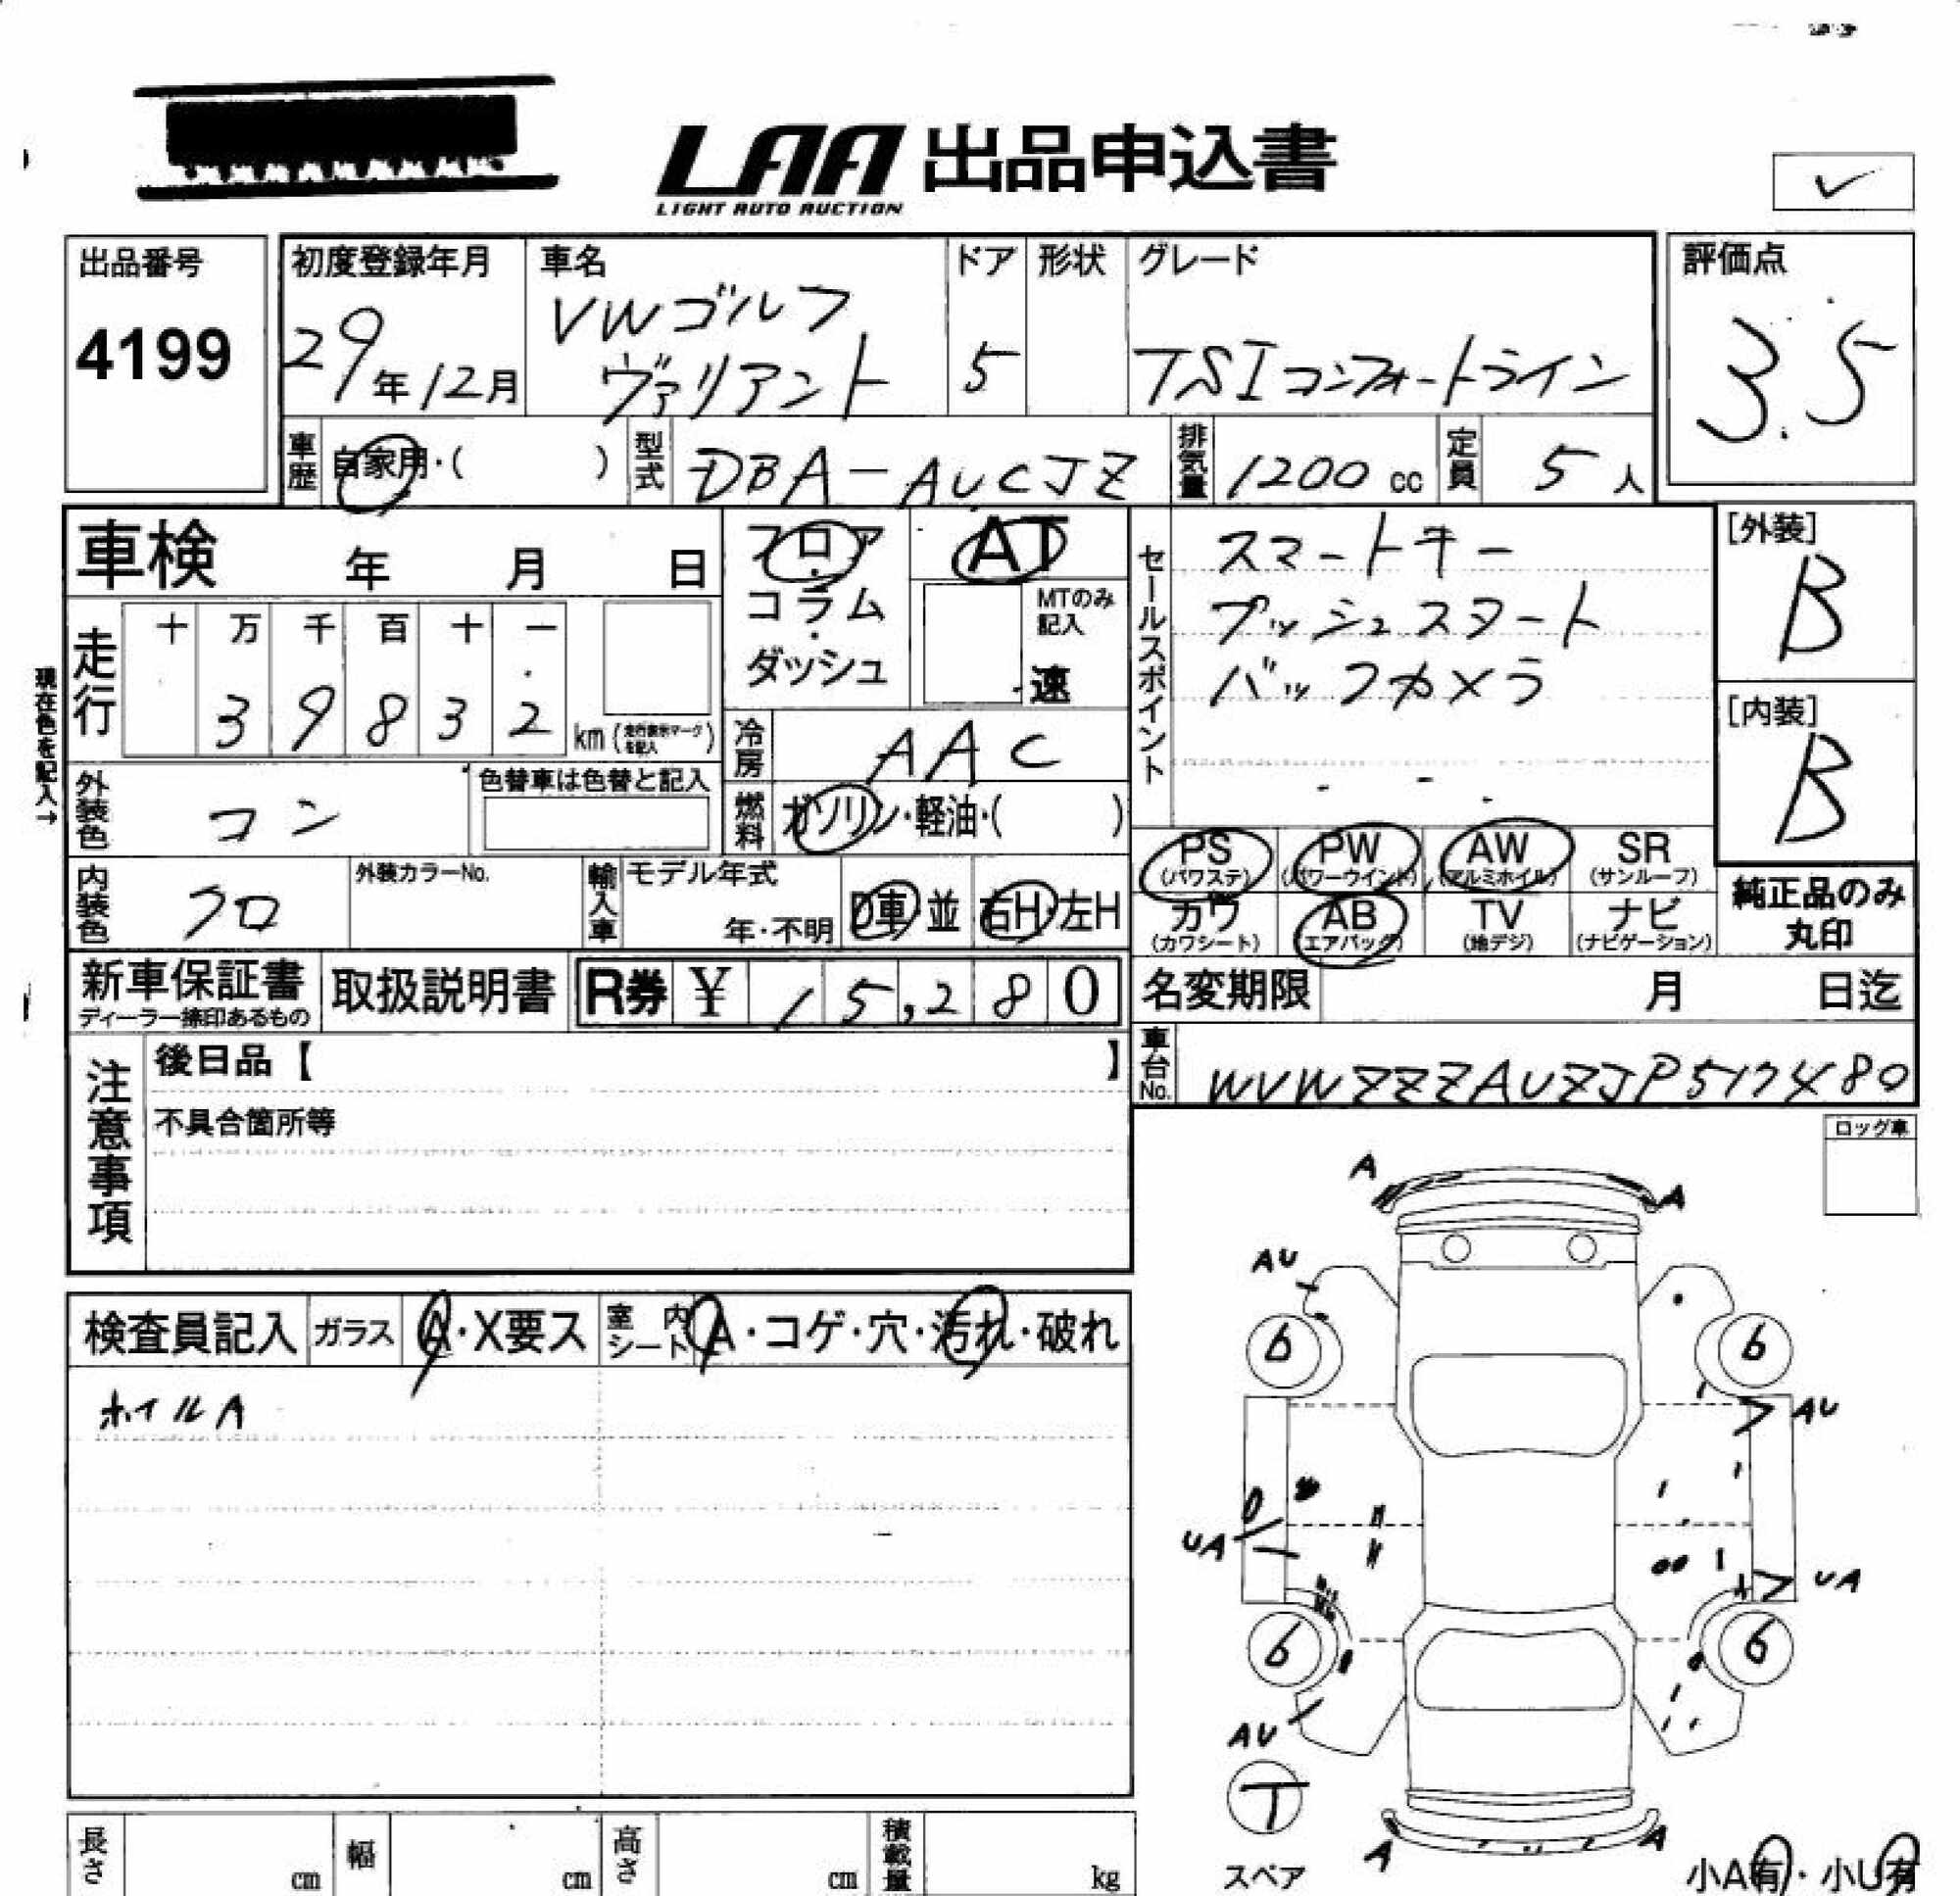 LAA 出品申込書
LIGHT AUTO AUCTION
出品番号
4199
初度登録年月
29年12月
車名
VWゴルフ
ヴァリアント
ドア
5
形状
グレード
TSIコンフォートライン
評価点
3.5
車歴
自家用・( )
型式
DBA-AUCJZ
排気量
1200 cc
定員
5人
車検 年 月 日
フロア・コラム・ダッシュ
AT
MTのみ記入
速
セールスポイント
スマートキー
プッシュスタート
バックカメラ
[外装]
B
[内装]
B
現在色を記入→
走行
十 万 千 百 十 一
3 9 8 3 2 km (走行表示マークを記入)
冷房
AAC
外装色
コン
色替車は色替と記入
燃料
ガソリン・軽油・( )
PS (パワステ)
PW (パワーウインド)
AW (アルミホイル)
SR (サンルーフ)
カワ (カワシート)
AB (エアバッグ)
TV (地デジ)
ナビ (ナビゲーション)
純正品のみ
丸印
内装色
クロ
外装カラーNo.
輸入車
モデル年式
年・不明
D車・並
右H・左H
新車保証書
ディーラー捺印あるもの
取扱説明書
R券 ¥ 15,280
名変期限 月 日迄
車台No.
WVWZZZAUZJP517480
注意事項
後日品【 】
不具合箇所等
ロッグ車
検査員記入
ガラス
A・X要ス
室内シート
A・コゲ・穴・汚れ・破れ
ホイルA
A
A
AU
6
6
AU
UA
UA
6
6
AU
T
スペア
A
A
小A有・小U有
長さ cm
幅 cm
高さ cm
積載量 kg